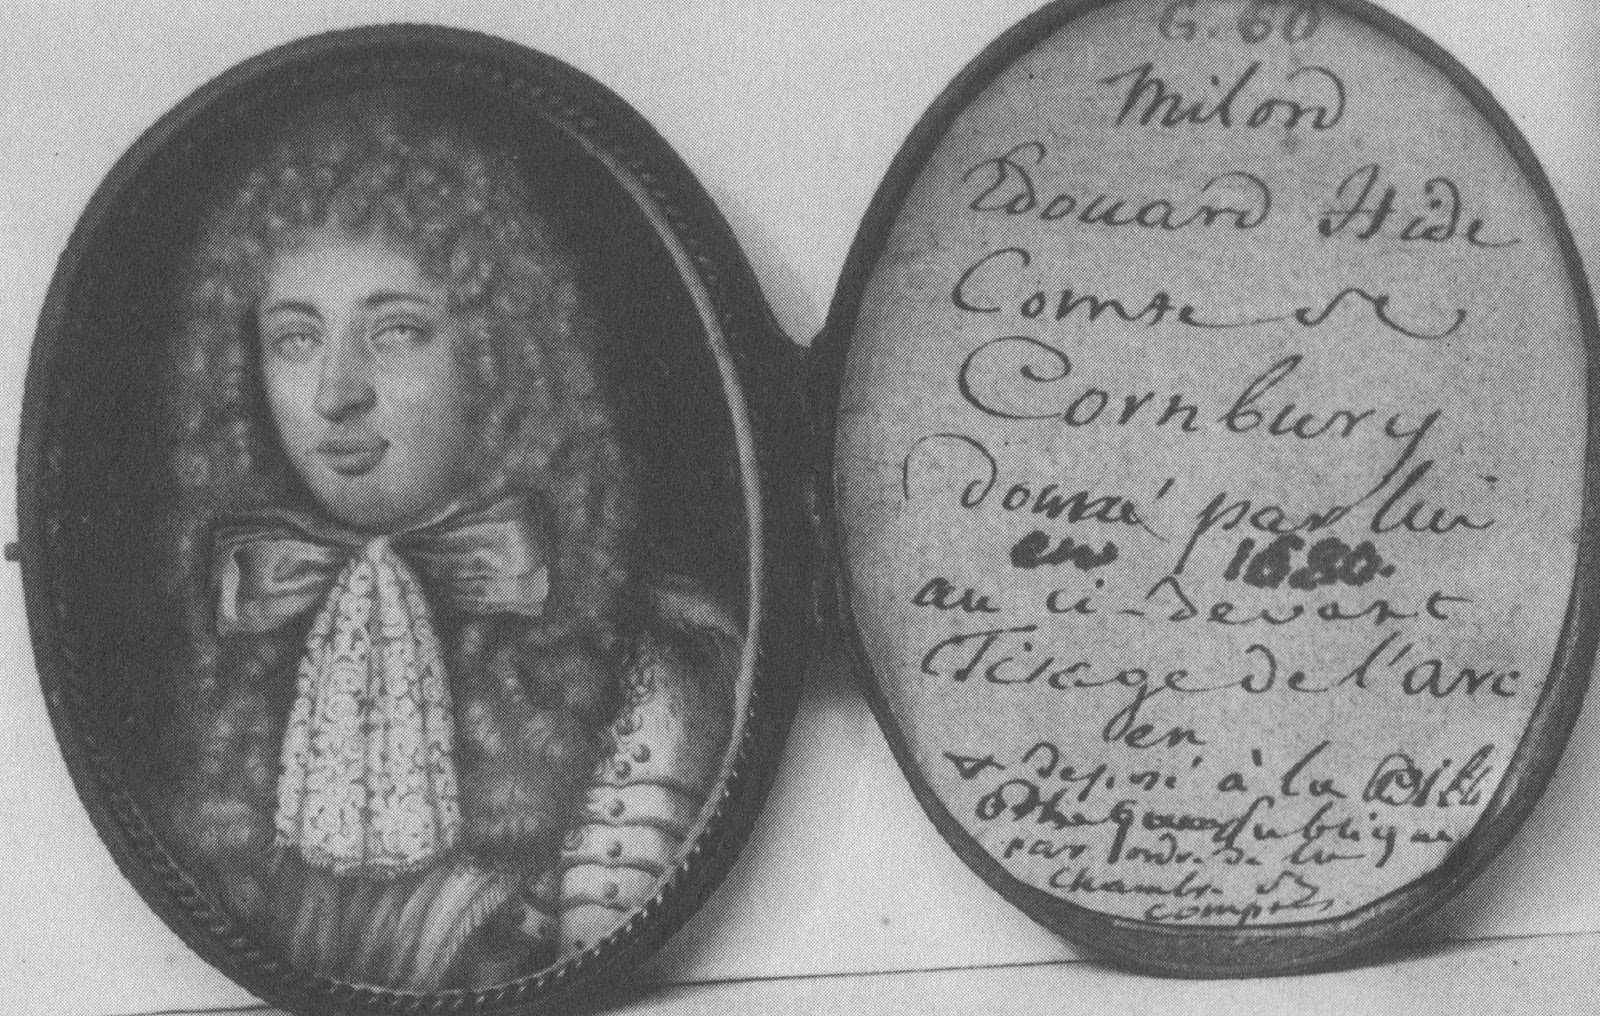 G. 60
Milord
Edouard Hide
Comte de
Cornbury
donné par lui
en 1680.
au ci-devant
Tirage de l'Arc
en
& deposé à la Bibli
otheque publique
par ordre de la
Chambre des
comptes